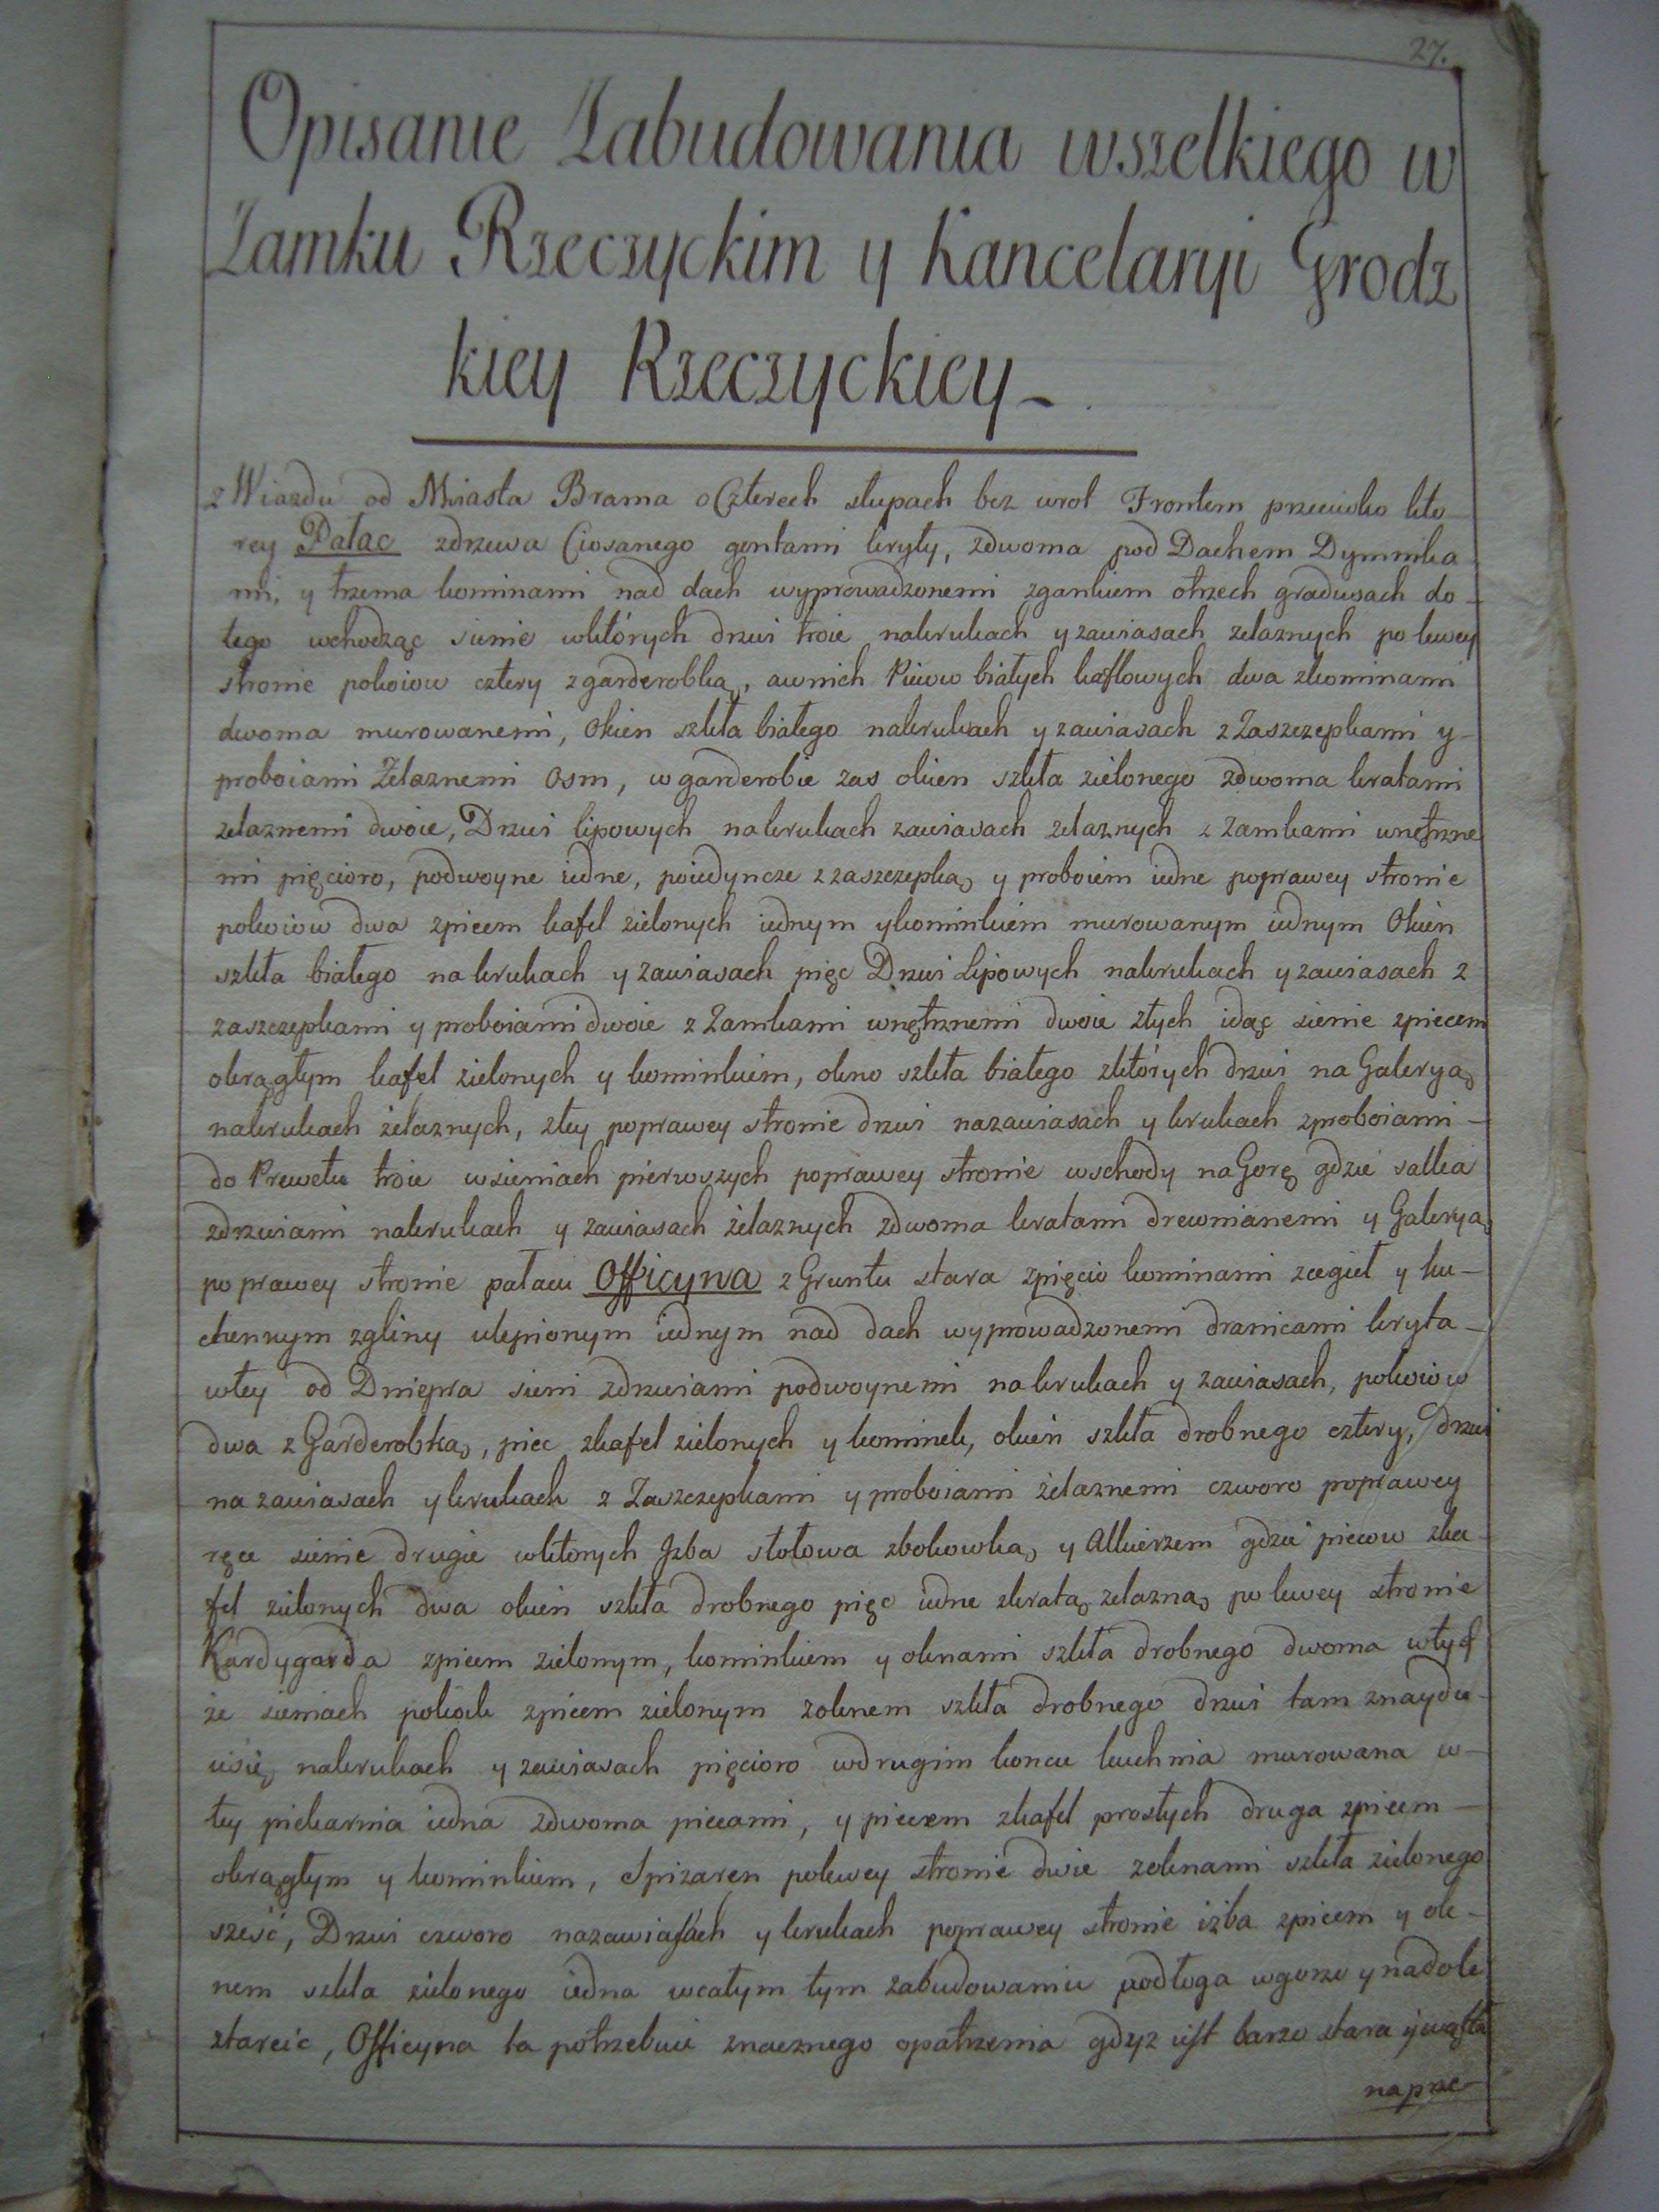 27.
Opisanie Zabudowania wszelkiego w
Zamku Rzeczyckim y Kancelaryi Grodz
kiey Rzeczyckiey
z Wiazdu od Miasta Brama o Czterech słupach bez wrot Frontem przeciwko kto
rey Pałac zdrzewa Ciosanego gontami kryty, zdwoma pod Dachem Dymnika
mi, y trzema kominami nad dach wyprowadzonemi zgankiem otrzech gradusach do
tego wchodząc sienie wktórych drzwi troie nakrukach y zawiasach zelaznych po lewey
stronie pokoiow cztery zgarderobką, awnich Piecow białych kaflowych dwa zkominami
dwoma murowanemi, Okien szkła białego nakrukach y zawiasach z Zaszczepkami y
proboiami Żelaznemi osm, w garderobie zas okien szkła zielonego zdwoma kratami
zelaznemi dwoie, Drzwi lipowych nakrukach zawiasach zelaznych z Zamkami wnętrzne
mi pięcioro, podwoyne iedne, poiedyncze z zaszczepką y proboiem iedne poprawey stronie
pokoiow dwa zpiecem kafel zielonych iednym ykominkiem murowanym iednym Okien
szkła białego na krukach y zawiasach pięc Drzwi Lipowych nakrukach y zawiasach z
zaszczepkami y proboiami dwoie z Zamkami wnętrznemi dwoie ztych idąc sienie zpiecem
okrągłym kafel zielonych y kominkiem, okno szkła białego zktórych drzwi na Galeryą
nakrukach żelaznych, ztey poprawey stronie drzwi nazawiasach y krukach zproboiami
do Prewetu troie wsieniach pierwszych poprawey stronie wschody na Gorę gdzie salka
zdrzwiami nakrukach y zawiasach żelaznych zdwoma kratami drewnianemi y Galeryą
po prawey stronie pałacu Officyna z Gruntu stara zpięcio kominami zcegieł y ku
chennym zgliny ulepionym iednym nad dach wyprowadzonemi dranicami kryta
wtey od Dniepra sieni zdrzwiami podwoynemi nakrukach y zawiasach, pokoiow
dwa z Garderobką, piec zkafel zielonych y kominek, okien szkła drobnego cztery, drzwi
na zawiasach y krukach z Zaszczepkami y proboiami żelaznemi czworo poprawey
ręce sienie drugie wktorych Jzba stołowa zbokowką y Alkierzem gdzie piecow zka
fel zielonych dwa okien szkła drobnego pięc iedne zkratą zelazną po lewey stronie
Kardygarda zpiecem zielonym, kominkiem y oknami szkła drobnego dwoma wtych
że sieniach pokoik zpiecem zielonym zoknem szkła drobnego drzwi tam znaydu
iesię nakrukach y zawiasach pięcioro wdrugim koncu kuchnia murowana w
tey piekarnia iedna zdwoma piecami, y piecem zkafel prostych druga zpiecem
okrągłym y kominkiem, Spizaren polewey stronie dwie zoknami szkła zielonego
szesć, Drzwi czworo nazawiasach y krukach poprawey stronie izba zpiecem y ok
nem szkła zielonego iedna wcałym tym zabudowaniu podłoga wgorze y nadole
starcic, Officyna ta potrzebuie znacznego opatrzenia gdyż iest barzo stara y wątła
naprze